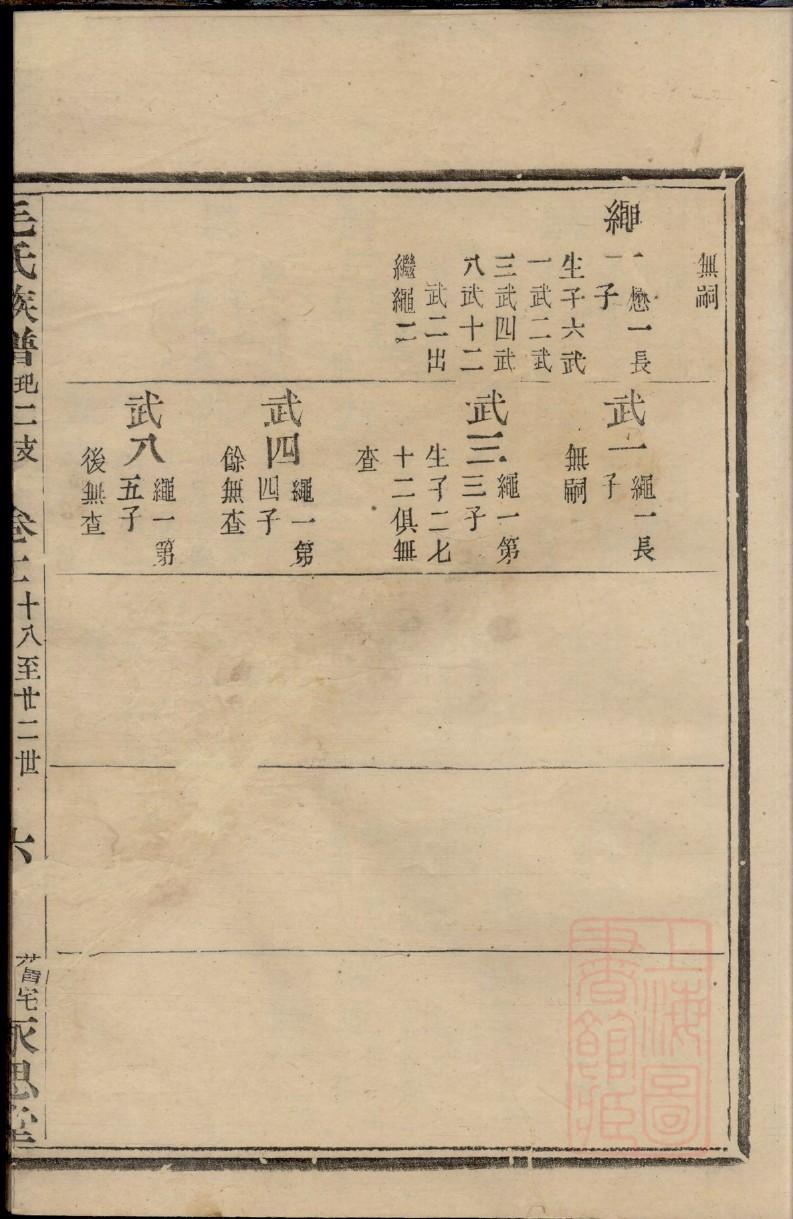 無嗣
繩一懋一長
子
生子六武
一武二武
三武四武
八武十二
武二出
繼繩二
武一繩一長
子
無嗣
武三繩一第
三子
生子二七
十二俱無
查
武四繩一第
四子
餘無查
武八繩一第
五子
後無查
毛氏族譜 玘二支 卷二 十八至廿二世 六 舊宅 永思堂
上海圖
書館藏